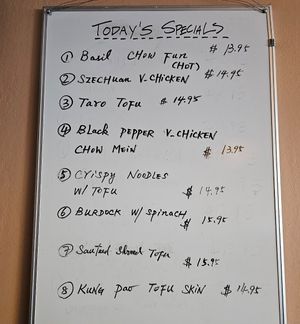 TODAY'S SPECIALS
① Basil CHOW Fun $13.95
(HOT)
② SZECHUAN V.CHICKEN $14.95
③ TARO TOFU $14.95
④ Black PEPPER V-CHICKEN
CHOW MEIN $13.95
⑤ CRISPY NOODLES
W/TOFU $14.95
⑥ BURDOCK W/ SPINACH $15.95
⑦ Sauteed Shred Tofu $15.95
⑧ KUNG PAO TOFU SKIN $14.95